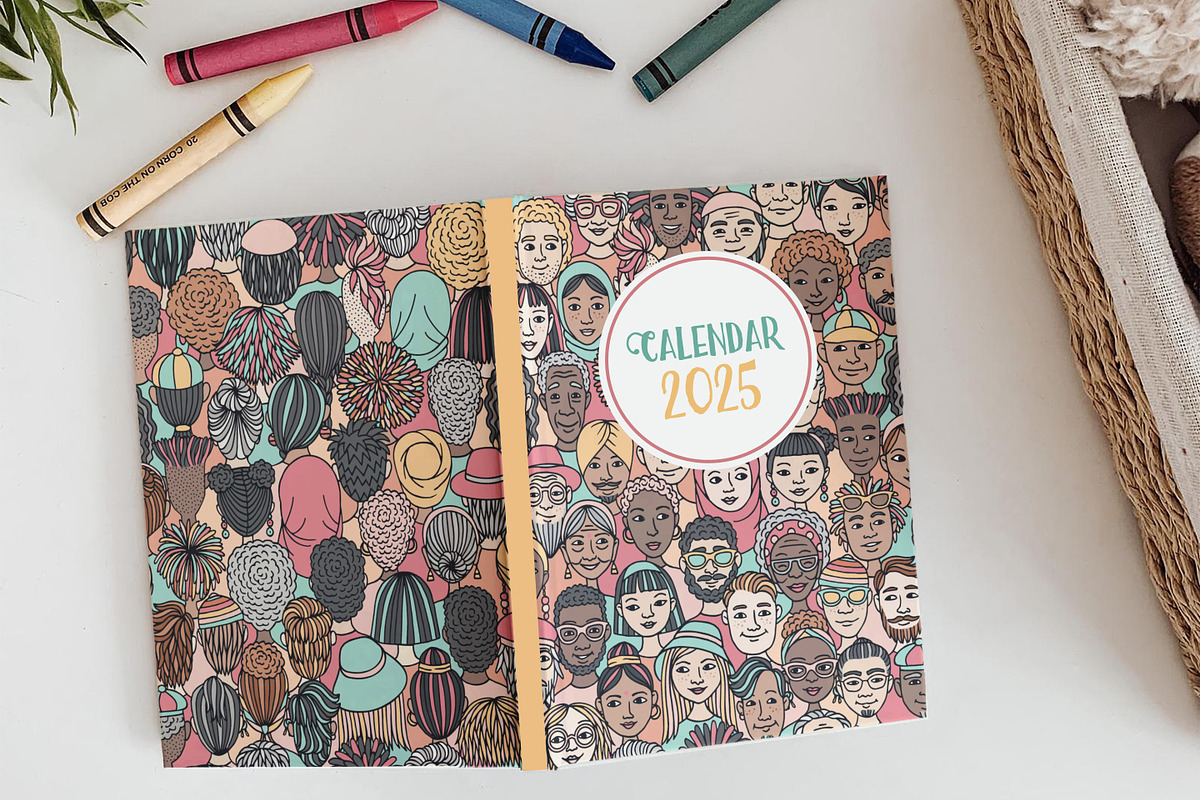 20 CORN ON THE COB
CALENDAR
2025